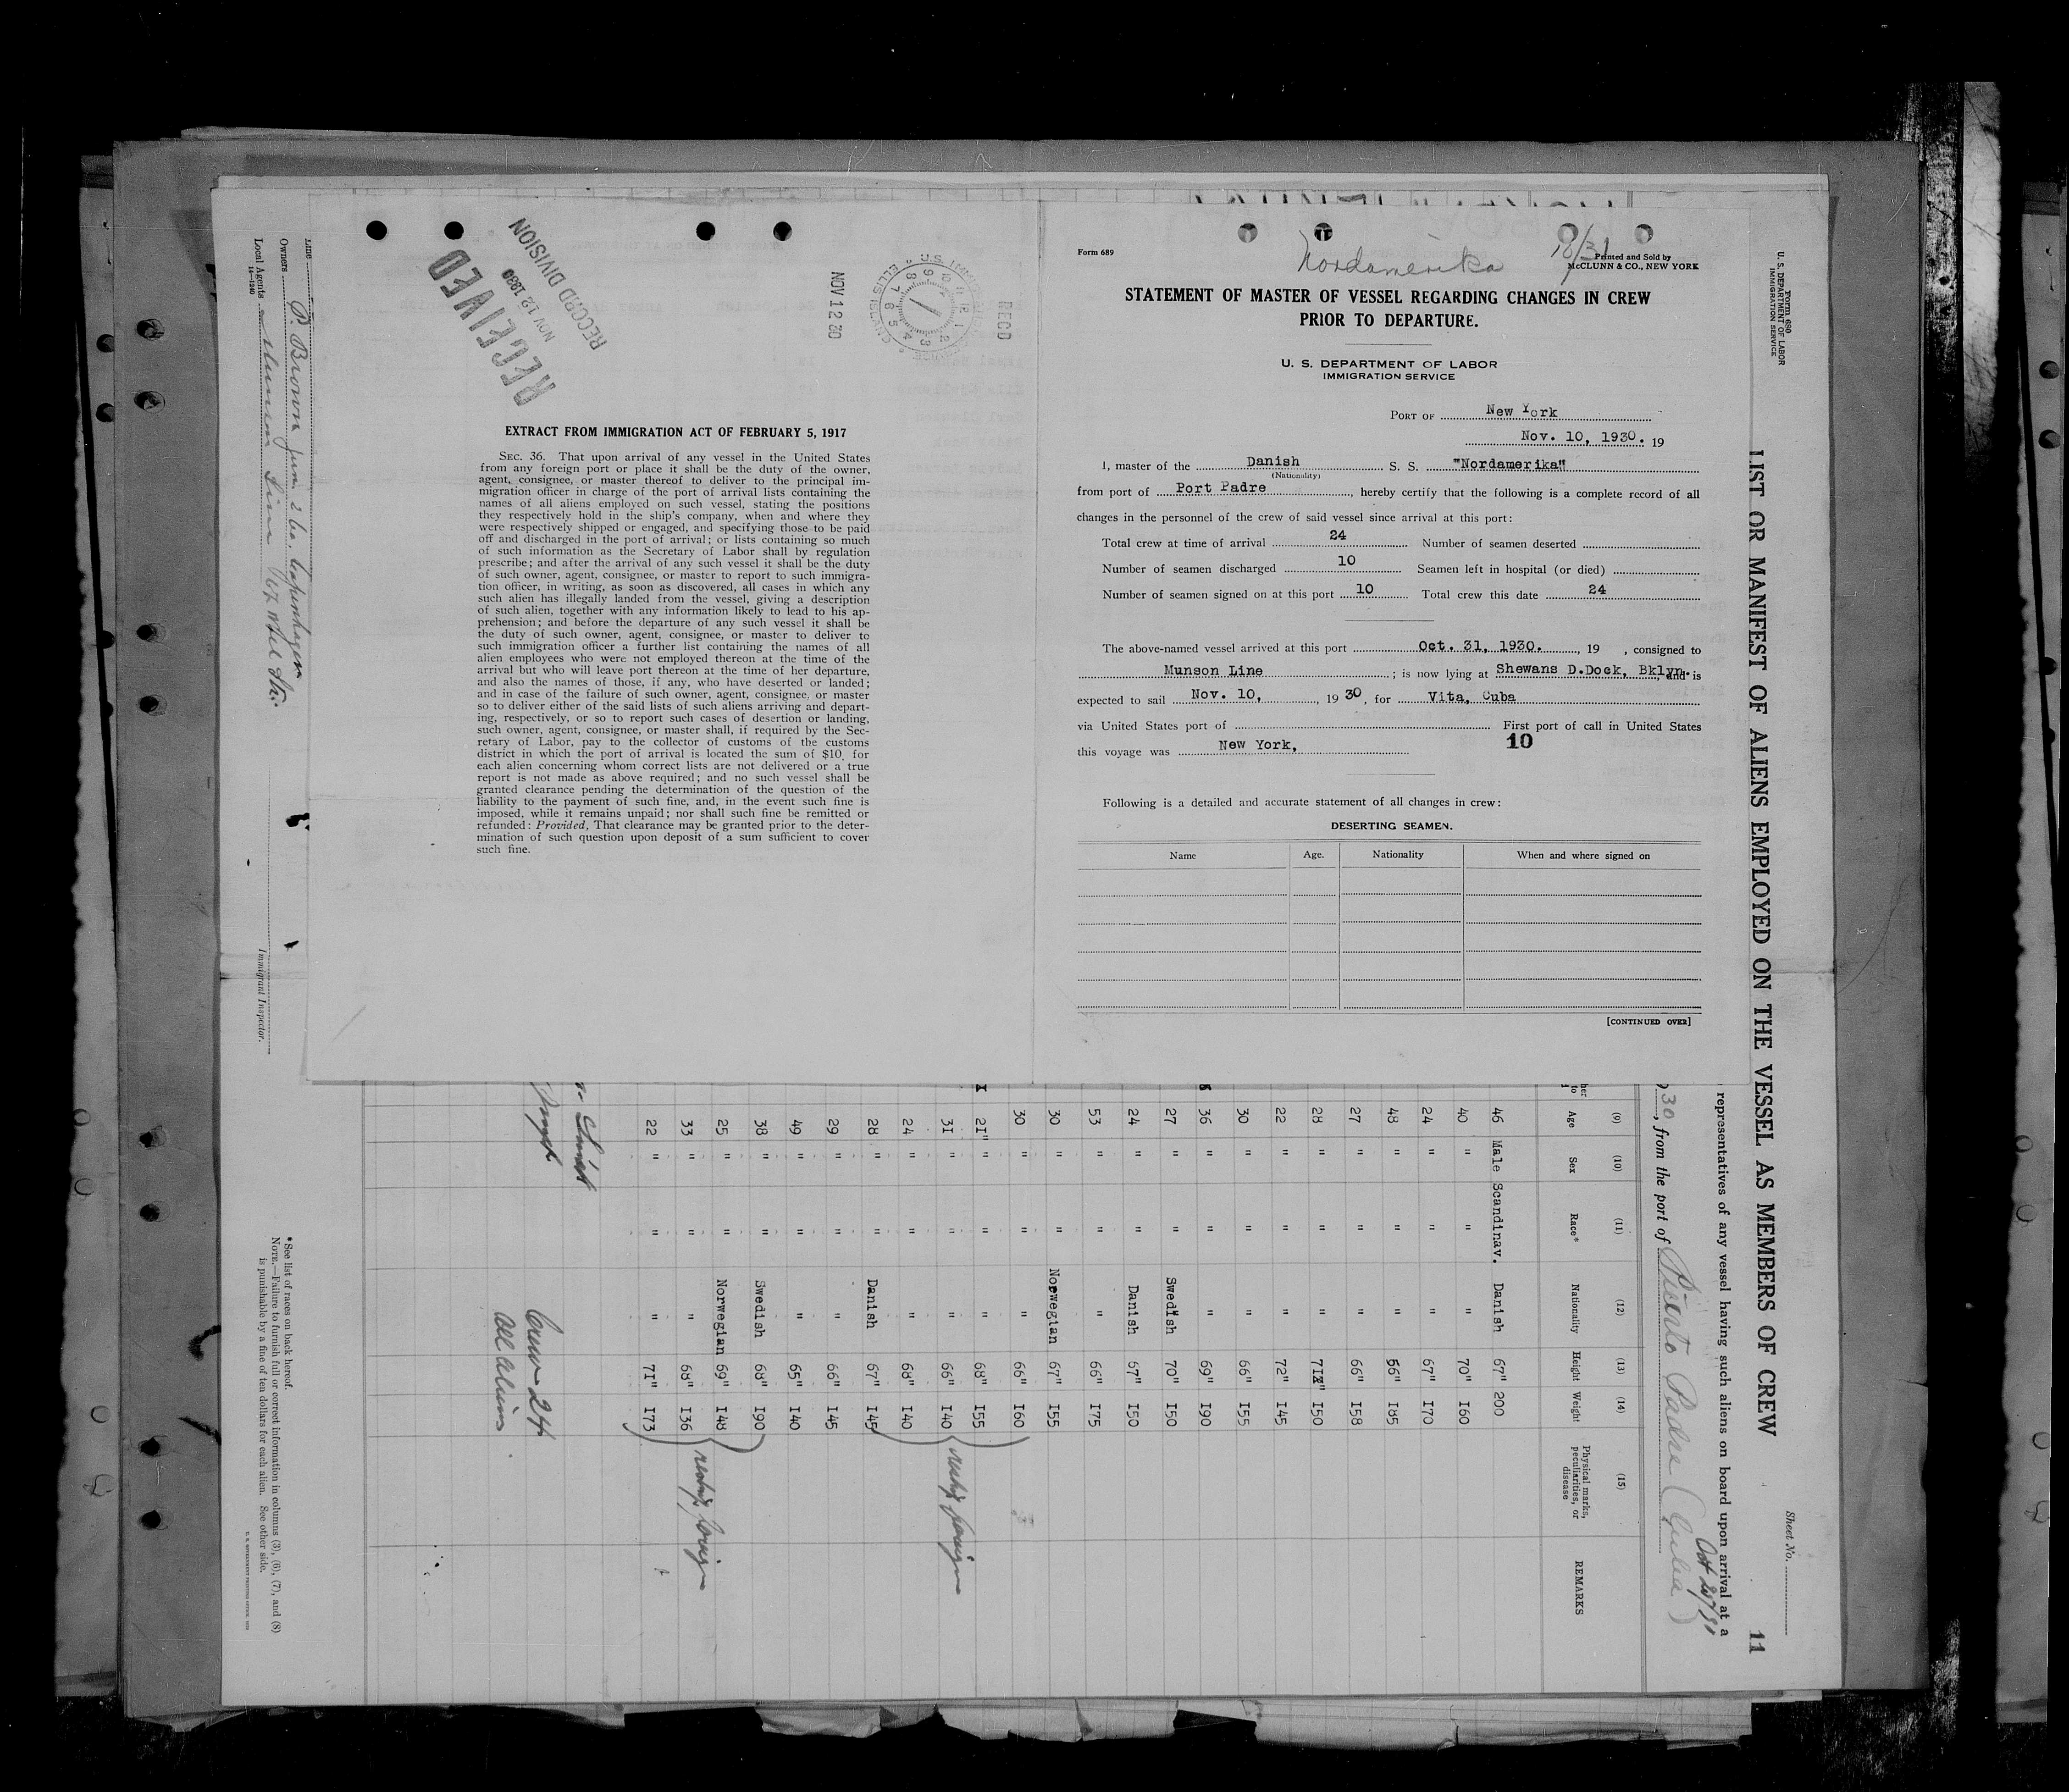 RECEIVED
NOV 12 1930
RECORD DIVISION
NOV 12 30
RECD
EXTRACT FROM IMMIGRATION ACT OF FEBRUARY 5, 1917
SEC. 36. That upon arrival of any vessel in the United States
from any foreign port or place it shall be the duty of the owner,
agent, consignee, or master thereof to deliver to the principal im-
migration officer in charge of the port of arrival lists containing the
names of all aliens employed on such vessel, stating the positions
they respectively hold in the ship's company, when and where they
were respectively shipped or engaged, and specifying those to be paid
off and discharged in the port of arrival; or lists containing so much
of such information as the Secretary of Labor shall by regulation
prescribe; and after the arrival of any such vessel it shall be the duty
of such owner, agent, consignee, or master to report to such immigra-
tion officer, in writing, as soon as discovered, all cases in which any
such alien has illegally landed from the vessel, giving a description
of such alien, together with any information likely to lead to his ap-
prehension; and before the departure of any such vessel it shall be
the duty of such owner, agent, consignee, or master to deliver to
such immigration officer a further list containing the names of all
alien employees who were not employed thereon at the time of the
arrival but who will leave port thereon at the time of her departure,
and also the names of those, if any, who have deserted or landed;
and in case of the failure of such owner, agent, consignee, or master
so to deliver either of the said lists of such aliens arriving and depart-
ing, respectively, or so to report such cases of desertion or landing,
such owner, agent, consignee, or master shall, if required by the Sec-
retary of Labor, pay to the collector of customs of the customs
district in which the port of arrival is located the sum of $10 for
each alien concerning whom correct lists are not delivered or a true
report is not made as above required; and no such vessel shall be
granted clearance pending the determination of the question of the
liability to the payment of such fine, and, in the event such fine is
imposed, while it remains unpaid; nor shall such fine be remitted or
refunded: Provided, That clearance may be granted prior to the deter-
mination of such question upon deposit of a sum sufficient to cover
such fine.
Form 689
Nordamerika
10/31
Printed and Sold by
McCLUNN & CO., NEW YORK
STATEMENT OF MASTER OF VESSEL REGARDING CHANGES IN CREW
PRIOR TO DEPARTURE.
U. S. DEPARTMENT OF LABOR
IMMIGRATION SERVICE
PORT OF New York
Nov. 10, 1930. 19
I, master of the Danish S. S. "Nordamerika"
(Nationality)
from port of Port Padre, hereby certify that the following is a complete record of all
changes in the personnel of the crew of said vessel since arrival at this port:
Total crew at time of arrival 24 Number of seamen deserted
Number of seamen discharged 10 Seamen left in hospital (or died)
Number of seamen signed on at this port 10 Total crew this date 24
The above-named vessel arrived at this port Oct. 31, 1930., 19 , consigned to
Munson Line ; is now lying at Shewans D.Dock, Bklyn. and is
expected to sail Nov. 10, , 19 30, for Vita, Cuba
via United States port of First port of call in United States
this voyage was New York,
10
Following is a detailed and accurate statement of all changes in crew:
DESERTING SEAMEN.
Name Age. Nationality When and where signed on
[CONTINUED OVER]
Form 680
U. S. DEPARTMENT OF LABOR
IMMIGRATION SERVICE
Sheet No.
11
LIST OR MANIFEST OF ALIENS EMPLOYED ON THE VESSEL AS MEMBERS OF CREW
representatives of any vessel having such aliens on board upon arrival at a
30, from the port of Puerto Padre (Cuba)
(9) (10) (11) (12) (13) (14) (15)
Age Sex Race* Nationality Height Weight Physical marks, peculiarities, or disease REMARKS
46 Male Scandinav. Danish 67" 200
40 " " " 70" I60
24 " " " 67" I70
48 " " " 66" I85
27 " " " 66" I58
28 " " " 71" I50
22 " " " 72" I45
30 " " " 66" I55
36 " " " 69" I90
27 " " Swedish 70" I50
24 " " Danish 67" I50
53 " " " 66" I75
30 " " Norwegian 67" I55
30 " " " 66" I60
2I " " " 68" I55
3I " " " 66" I40
24 " " " 68" I40
28 " " Danish 67" I45
29 " " " 66" I45
49 " " " 65" I40
38 " " Swedish 68" I90
25 " " Norwegian 69" I48
33 " " " 68" I36
22 " " " 7I" I73
Crew 24
All aliens
Line
Owners P. Brown junr. & Co. Copenhagen
Local Agents Munson Line
Immigrant Inspector.
*See list of races on back hereof.
NOTE.—Failure to furnish full or correct information in columns (3), (6), (7), and (8)
is punishable by a fine of ten dollars for each alien. See other side.